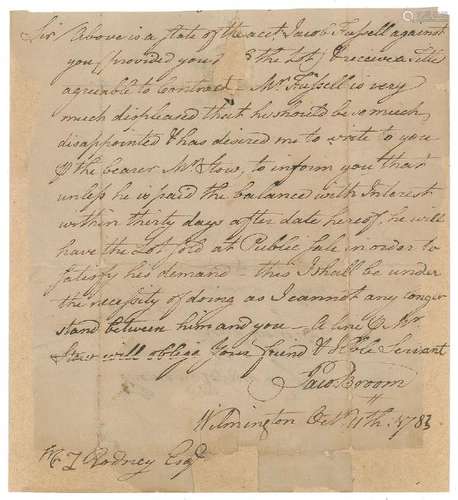 Sir Above is a state of the acct. Jacob Fussell against
you (provided your the Lot) & receive a title
agreeable to Contract. Mr. Fussell is very
much displeased that he should be so much
disappointed & has desired me to write to you
⅌ the bearer Mr. Stow, to inform you that
unless he is paid the balance with Interest
within thirty days after date hereof, he will
have the Lot sold at Public sale in order to
satisfy his demand this I shall be under
the necessity of doing as I cannot any longer
stand between him and you A line ⅌ Mr.
Stow will oblige Your friend & Hble Servant
Jaco Broom
Wilmington Octr. 11th. 1783
Mr. T Rodney Esqr.